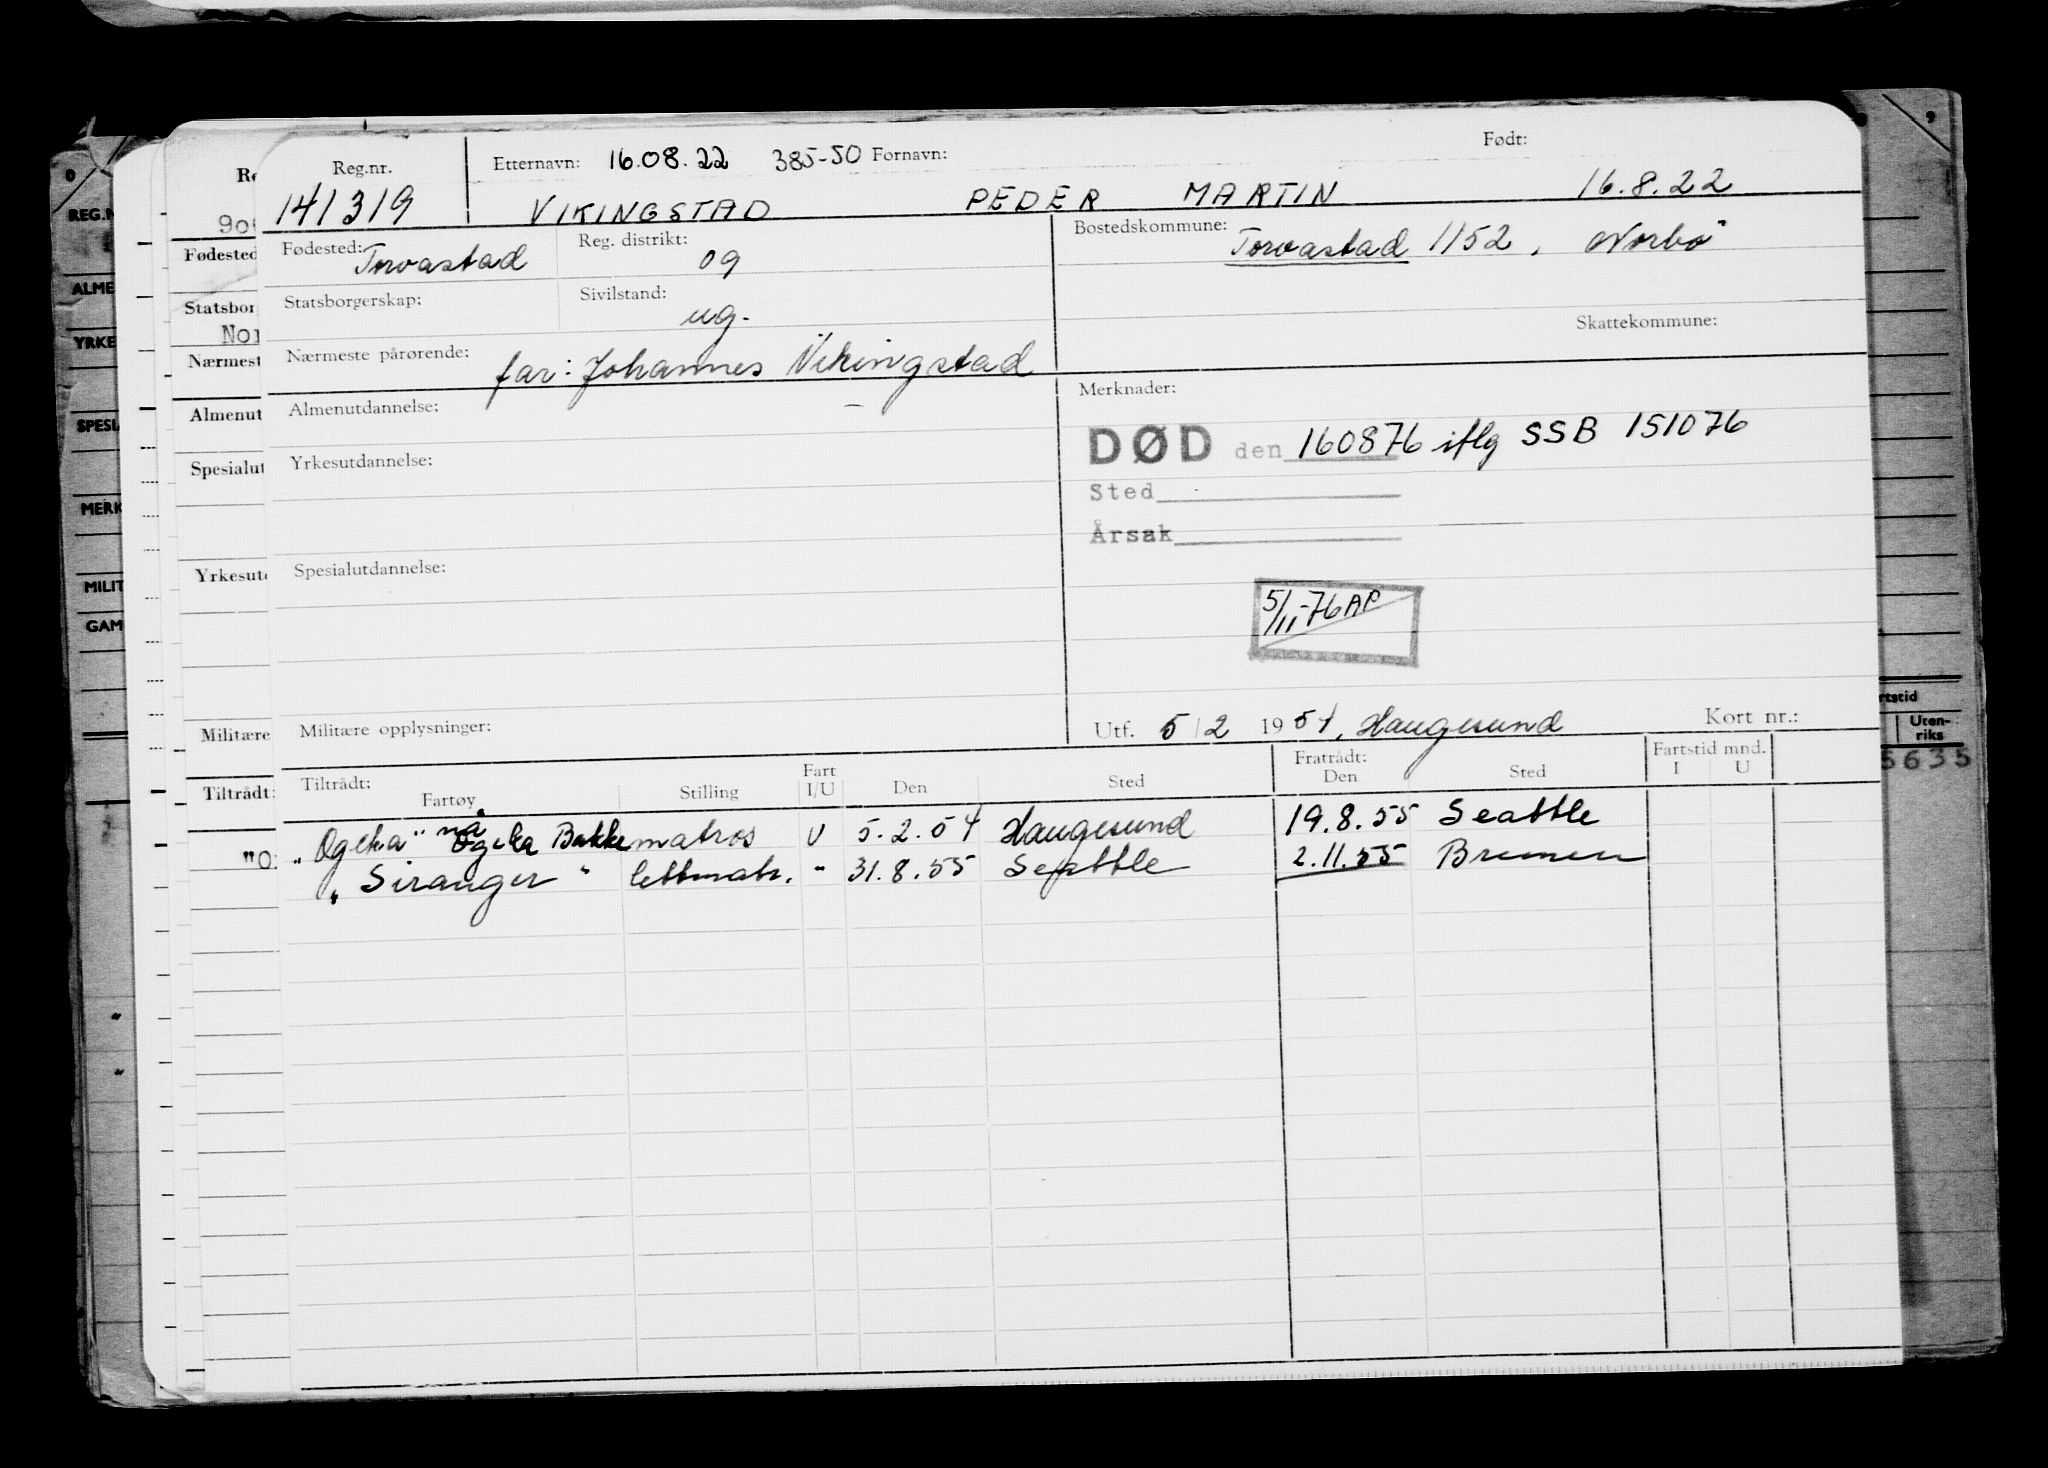 Reg.nr. Etternavn: 16.08.22 385-50 Fornavn: Født:
141319 VIKINGSTAD PEDER MARTIN 16.8.22
Fødested: Torvastad Reg. distrikt: 09 Bostedskommune: Torvastad 1152, Norbø
Statsborgerskap: Sivilstand: ug. Skattekommune:
Nærmeste pårørende: far: Johannes Vikingstad
Almenutdannelse: Merknader:
DØD den 160876 iflg SSB 151076
Yrkesutdannelse:
Sted
Årsak
Spesialutdannelse:
5/11-76 AP
Militære opplysninger: Utf. 5/2 1954, Haugesund Kort nr.:
Tiltrådt: Fartøy Stilling Fart I/U Den Sted Fratrådt: Den Sted Fartstid mnd. I U
"Ogeka" nå Ogeka Bakke matros U 5.2.54 Haugesund 19.8.55 Seattle
"Siranger" lettmatr. " 31.8.55 Seattle 2.11.55 Bremen
Fødested
Statsbor
Nor
Nærmest
Almenut
Spesialut
Yrkesut
Militære
Tiltrådt:
"O
REG.N
ALME
YRKE
SPESI
MERK
MILIT
GAM
rtstid
Uten-
riks
5635